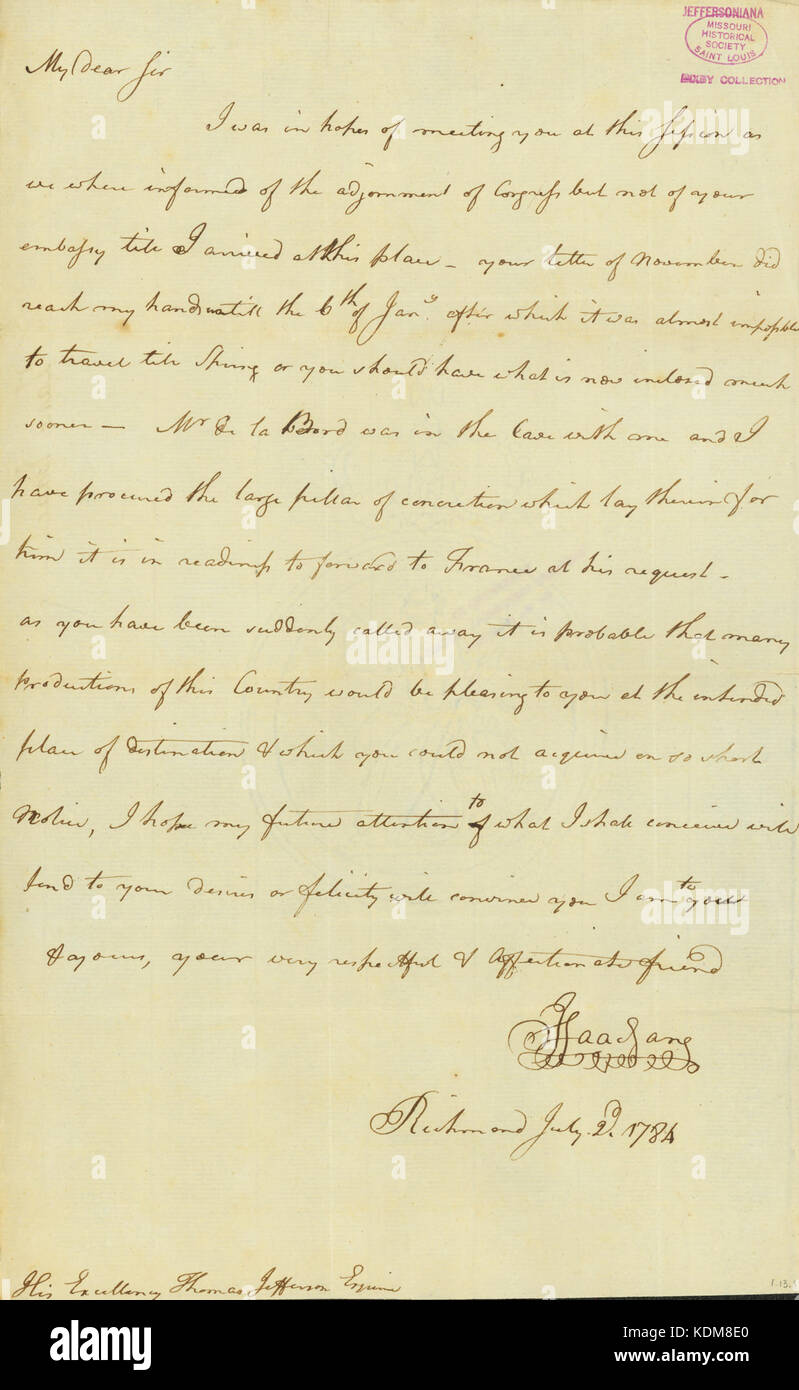 JEFFERSONIANA
MISSOURI
HISTORICAL
SOCIETY
SAINT LOUIS
BIXBY COLLECTION
My Dear Sir
I was in hopes of meeting you at this Session as
we where informed of the adjornment of Congress but not of your
embassy till I arrived at this place – your letter of November did
reach my hands until the 6th of Jany. after which it was almost impossible
to travel till Spring or you should have what is now inclosed much
sooner — Mr De la Bord was in the Cave with me and I
have procured the large pillar of concretion which lay therein for
him it is in readiness to forward to France at his request –
as you have been suddenly called away it is probable that many
productions of this Country would be pleasing to you at the intended
place of distination & which you could not acquire on so short
Notice, I hope my future attention to of what I shall conceive will
tend to your desires or felicity will convince you I am to you
& yours, your very respectful & Affectionate friend
Isaac Zane
Richmond July 2d. 1784
His Excellency Thomas Jefferson Esquire
1.13.
a alamy
alamy
Image ID: KDM8E0
www.alamy.com